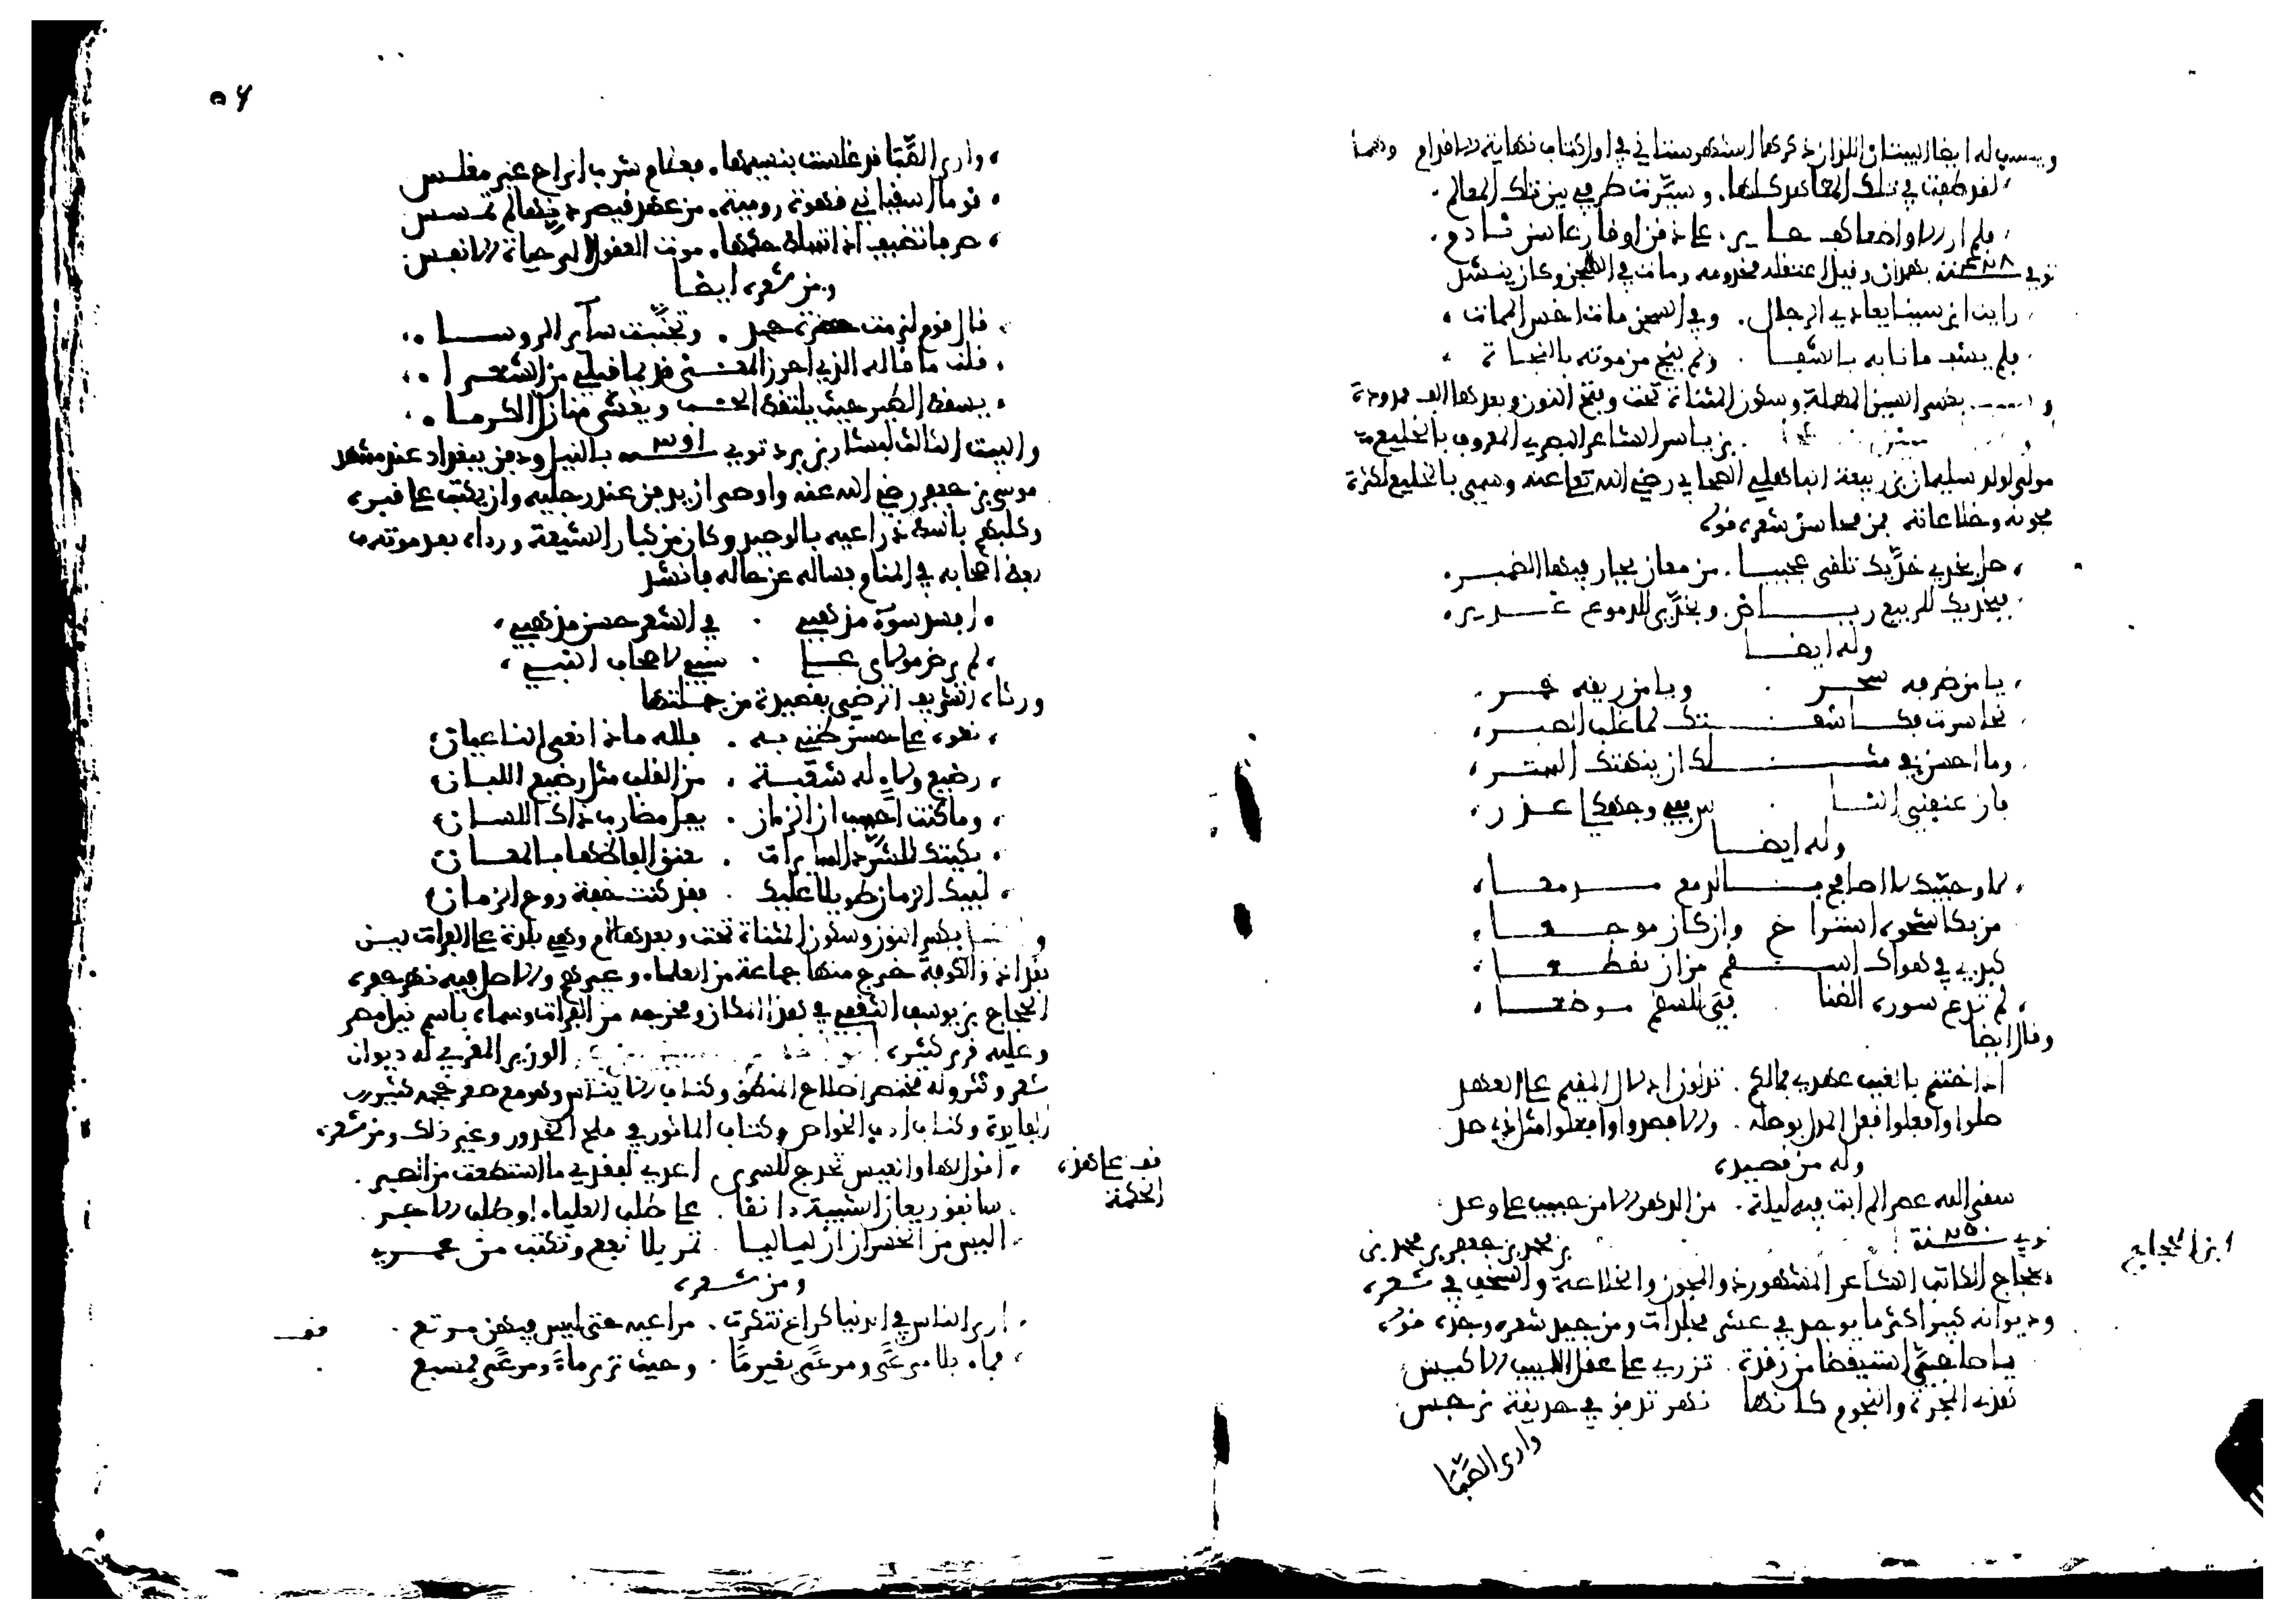 وينسب له ايضا البيتان اللذان ذكرهما الشهرستاني في اول كتاب نهاية الاقدام وهما
لقد طفت في تلك المعاهد كلها . وسيّرت طرفي بين تلك المعالم
فلم ار الا واضعا كف حاير . على ذقن او قارعا سن نادم
توفي سنة ٤٢٨ بهمدان وقيل اعتقله مخدومه ومات في السجن وكان ينشد
رايت ابن سينا يعادي الرجال . وفي السجن مات اخس الممات
فلم يشف ما نابه بالشفا . ولم ينج من موته بالنجاة
بكسر السين المهملة وسكون المثناة تحت وفتح النون وبعدها الف ممدودة
بن ياسر الشاعر البصري المعروف بالخليع
مولى لولد سليمان بن ربيعة الباهلي الصحابي رضي الله تعلى عنه وسمي بالخليع لكثرة
مجونه وخلاعاته فمن محاسن شعره قوله
صل بخدي خدّيك تلقى عجيبا . من معان يحار فيها الضمير
فبخديك للربيع رياض وبخدّي للدموع غدير
وله ايضا
يا من طرفه سحر . ويا من ريقه خمر
تجاسرت فكاشفتك لما غلب الصبر
وما احسن في مثلك ان ينهتك الستر
فان عنفني الناس ففي وجهك لي عذر
وله ايضا
لا وحبّيك لا اصافح بالدمع مدمعا
من بكا شجوه استراح وان كان موجعا
كبدي في هواك اسقم من ان تقطعا
لم تدع سورة الضنا فيّ للسقم موضعا
وقال ايضا
اذا خنتم بالغيب عهدي فمالكم . تدلون ادلال المقيم على العهد
صلوا وافعلوا فعل المدل بوصله . والا فصدوا وافعلوا مثل ذي صد
وله من قصيدة
سقى الله عصرا لم ابت فيه ليلة . من الدهر الا من حبيب على وعد
توفي سنة ٢٥٠ بن محمد بن جعفر بن محمد بن
ابن الحجاج
الحجاج الكاتب الشاعر المشهور ذو المجون والخلاعة والسخف في شعره
وديوانه كبير اكثر ما يوجد في عشر مجلدات ومن جيد شعره وجده قوله
يا صاحبيّ استيقظا من رقدة . تزري على عقل اللبيب الاكيس
هذه المجرة والنجوم كانها نهر تدفق في حديقة نرجس
وارى الصّبا
٥٤
وارى الصّبا قد غلست بنسيمها . فعلام شرب الراح غير مغلس
قوما اسقياني قهوة رومية . من عهد قيصر دنّها لم تمسس
صرفا تضيف اذا تسلط حكمها . موت العقول الى حياة الانفس
ومن شعره ايضا
قال قوم لزمت حضرة حمد . وتجنّبت سآئر الروسا
قلت ما قاله الذي احرز المعنى قديما قبلي من الشعرا
يسقط الطير حيث يلتقط الحب ويغشى منازل الكرما
والبيت الثالث لبشار بن برد توفي سنة ٣٩١ بالنيل ودفن ببغداد عند مشهد
موسى بن جعفر رضي الله عنه واوصى ان يدفن عند رجليه وان يكتب على قبره
وكلبهم باسط ذراعيه بالوصيد وكان من كبار الشيعة ورءاه بعد موته
بعض اصحابه في المنام فساله عن حاله فانشد
افسد سوء مذهبي . في الشعر حسن مذهبي
لم يرض مولاي على . سبي لاصحاب النبي
ورثاه الشريف الرضي بقصيدة من جملتها
نعوه على حسن ظني به . فلله ماذا نعى الناعيان
رضيع ولاء له شعبة . من القلب مثل رضيع اللبان
وما كنت احسب ان الزمان . يفل مضارب ذاك اللسان
بكيتك للشّرّد السايرات . تعنق الفاظها بالمعان
لبيك الزمان طويلا عليك . فقد كنت خفة روح الزمان
بكسر النون وسكون المثناة تحت وبعدها لام وهي بلدة على الفرات بين
بغداد والكوفة خرج منها جماعة من العلماء وغيرهم والاصل فيه نهر حفره
الحجاج بن يوسف الثقفي في هذا المكان ومخرجه من الفرات وسماه باسم نيل مصر
وعليه قرى كثيرة الوزير المغربي له ديوان
شعر ونثر وله مختصر اصلاح المنطق وكتاب الايناس وهو مع صغر حجمه كثير
الفايدة وكتاب ادب الخواص وكتاب الماثور في ملح الخدور وغير ذلك ومن شعره
قف على هذه
الحكمة
اقول لها والعيس تحدج للسرى اعدي لفقدي ما استطعت من الصبر
سانفق ريعان الشبيبة دانفا . على طلب العلياء او طلب الاجر
اليس من الخسران ان لياليا . تمر بلا نفع وتكتب من عمري
ومن شعره
ارى الناس في الدنيا كراع تنكرت . مراعيه حتى ليس فيهن مرتع
فماء بلا مرعى ومرعى بغير ما . وحيث ترى ماء ومرعى فمسبع
قف